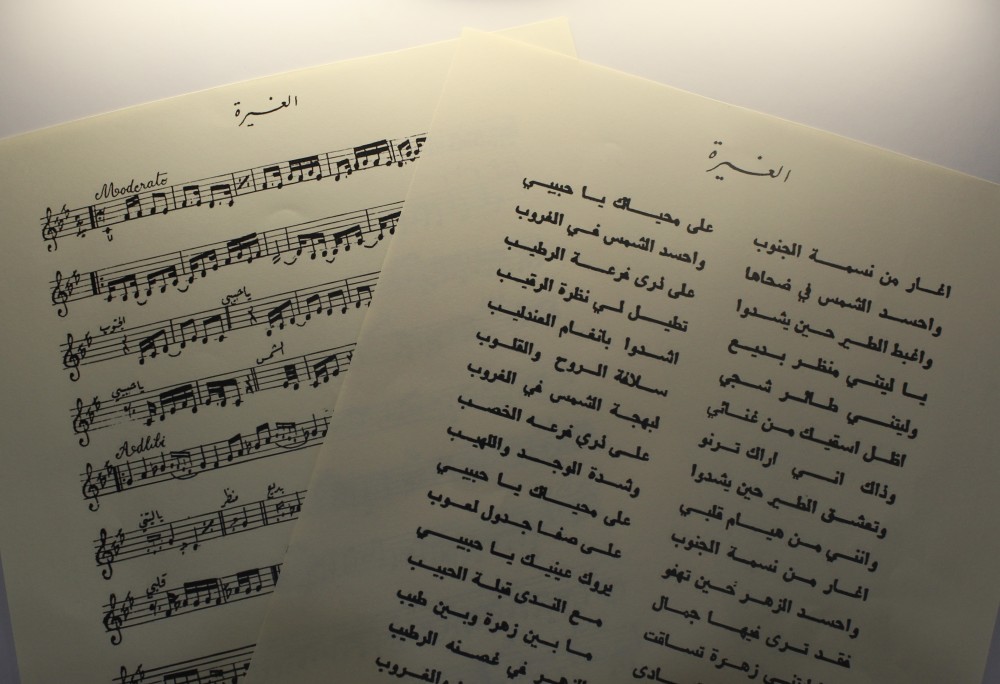 الغيرة
Moderato
ياحبيبي
الجنوب
الشمس
ياحبيبي
Adlibi
ياليتني منظر بديع
قلبي
الغيرة
اغار من نسمة الجنوب على محياك يا حبيبي
واحسد الشمس في ضحاها واحسد الشمس في الغروب
واغبط الطير حين يشدوا على ذرى فرعة الرطيب
يا ليتني منظر بديع تطيل لي نظرة الرقيب
وليتني طائر شجي اشدوا بانغام العندليب
اظل اسقيك من غنائي سلافة الروح والقلوب
وذاك اني اراك ترنو لبهجة الشمس في الغروب
وتعشق الطير حين يشدوا على ذري فرعه الخصب
وانني من هيام قلبي وشدة الوجد واللهيب
اغار من نسمة الجنوب على محياك يا حبيبي
واحسد الزهر حين تهفو على صفا جدول لعوب
فقد ترى فيها جمال يروك عينيك يا حبيبي
زهرة تساقت مع الندى قبلة الحبيب
ما بين زهرة وبين طيب
الزهر في غصنه الرطيب
والغروب